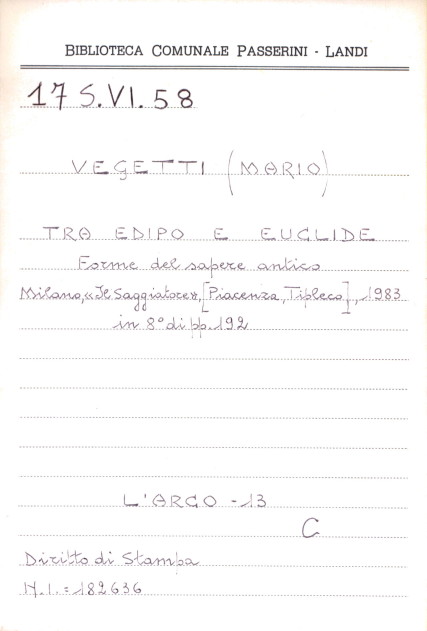 BIBLIOTECA COMUNALE PASSERINI - LANDI
17 S.VI.58
VEGETTI (MARIO)
TRA EDIPO E EUCLIDE
Forme del sapere antico
Milano, «Il Saggiatore», [Piacenza, Tipleco], 1983
in 8° di pp. 192
L'ARCO - 13
C
Diritto di Stampa
N.I. = 182636